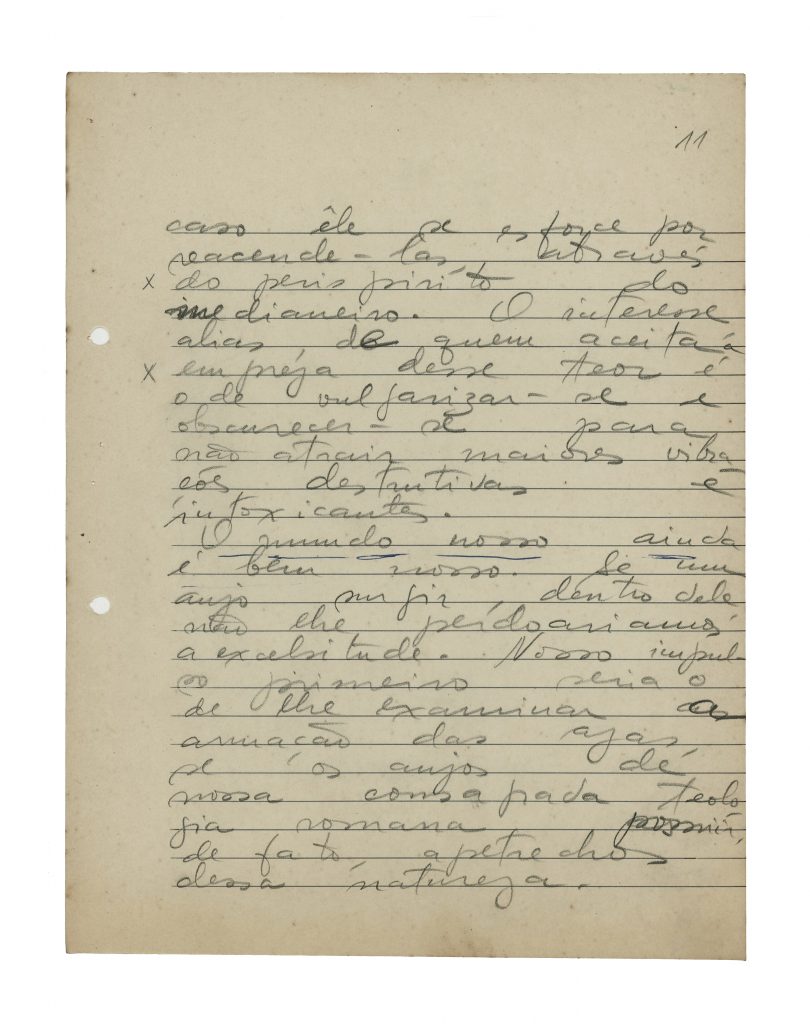 11
caso êle se esforce por
reacende-las através
x do perispírito do
medianeiro. O interesse
alias de quem aceita a
x empreja desse teor é
o de vulgarizar-se e
obscurecer-se para
não atrair maiores vibra
cões destrutivas e
intoxicantes.
O mundo nosso ainda
é bem nosso. Se um
anjo surgir, dentro dele
não lhe perdoariamos
a excelsitude. Nosso impul-
so primeiro seria o
de lhe examinar a
armação das asas,
se os anjos de
nossa consagrada teolo
gia romana
de fato, apetrechos
dessa natureza.